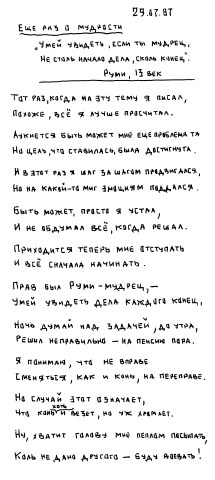 29.07.87
Еще раз о мудрости
"Умей увидеть, если ты мудрец,
Не столь начало дела, сколь конец".
Руми, 13 век
Тот раз, когда на эту тему я писал,
Похоже, всё я лучше просчитал.
Аукнется быть может мне еще проблема та
Но цель, что ставилась, была достигнута.
И в этот раз я шаг за шагом продвигался,
Но на какой-то миг эмоциям поддался.
Быть может, просто я устал,
И не обдумал всё, когда решал.
Приходится теперь мне отступать
И всё сначала начинать.
Прав был Руми-мудрец,—
Умей увидеть дела каждого конец,
Ночь думай над задачей до утра,
Решил неправильно – на пенсию пора.
Я понимаю, что не вправе
Сменяться, как и конь, на переправе.
Но случай этот означает,
Что конь хоть и везет, но уж хромает.
Ну, хватит голову мне пеплом посыпать,
Коль не дано другого – буду воевать!